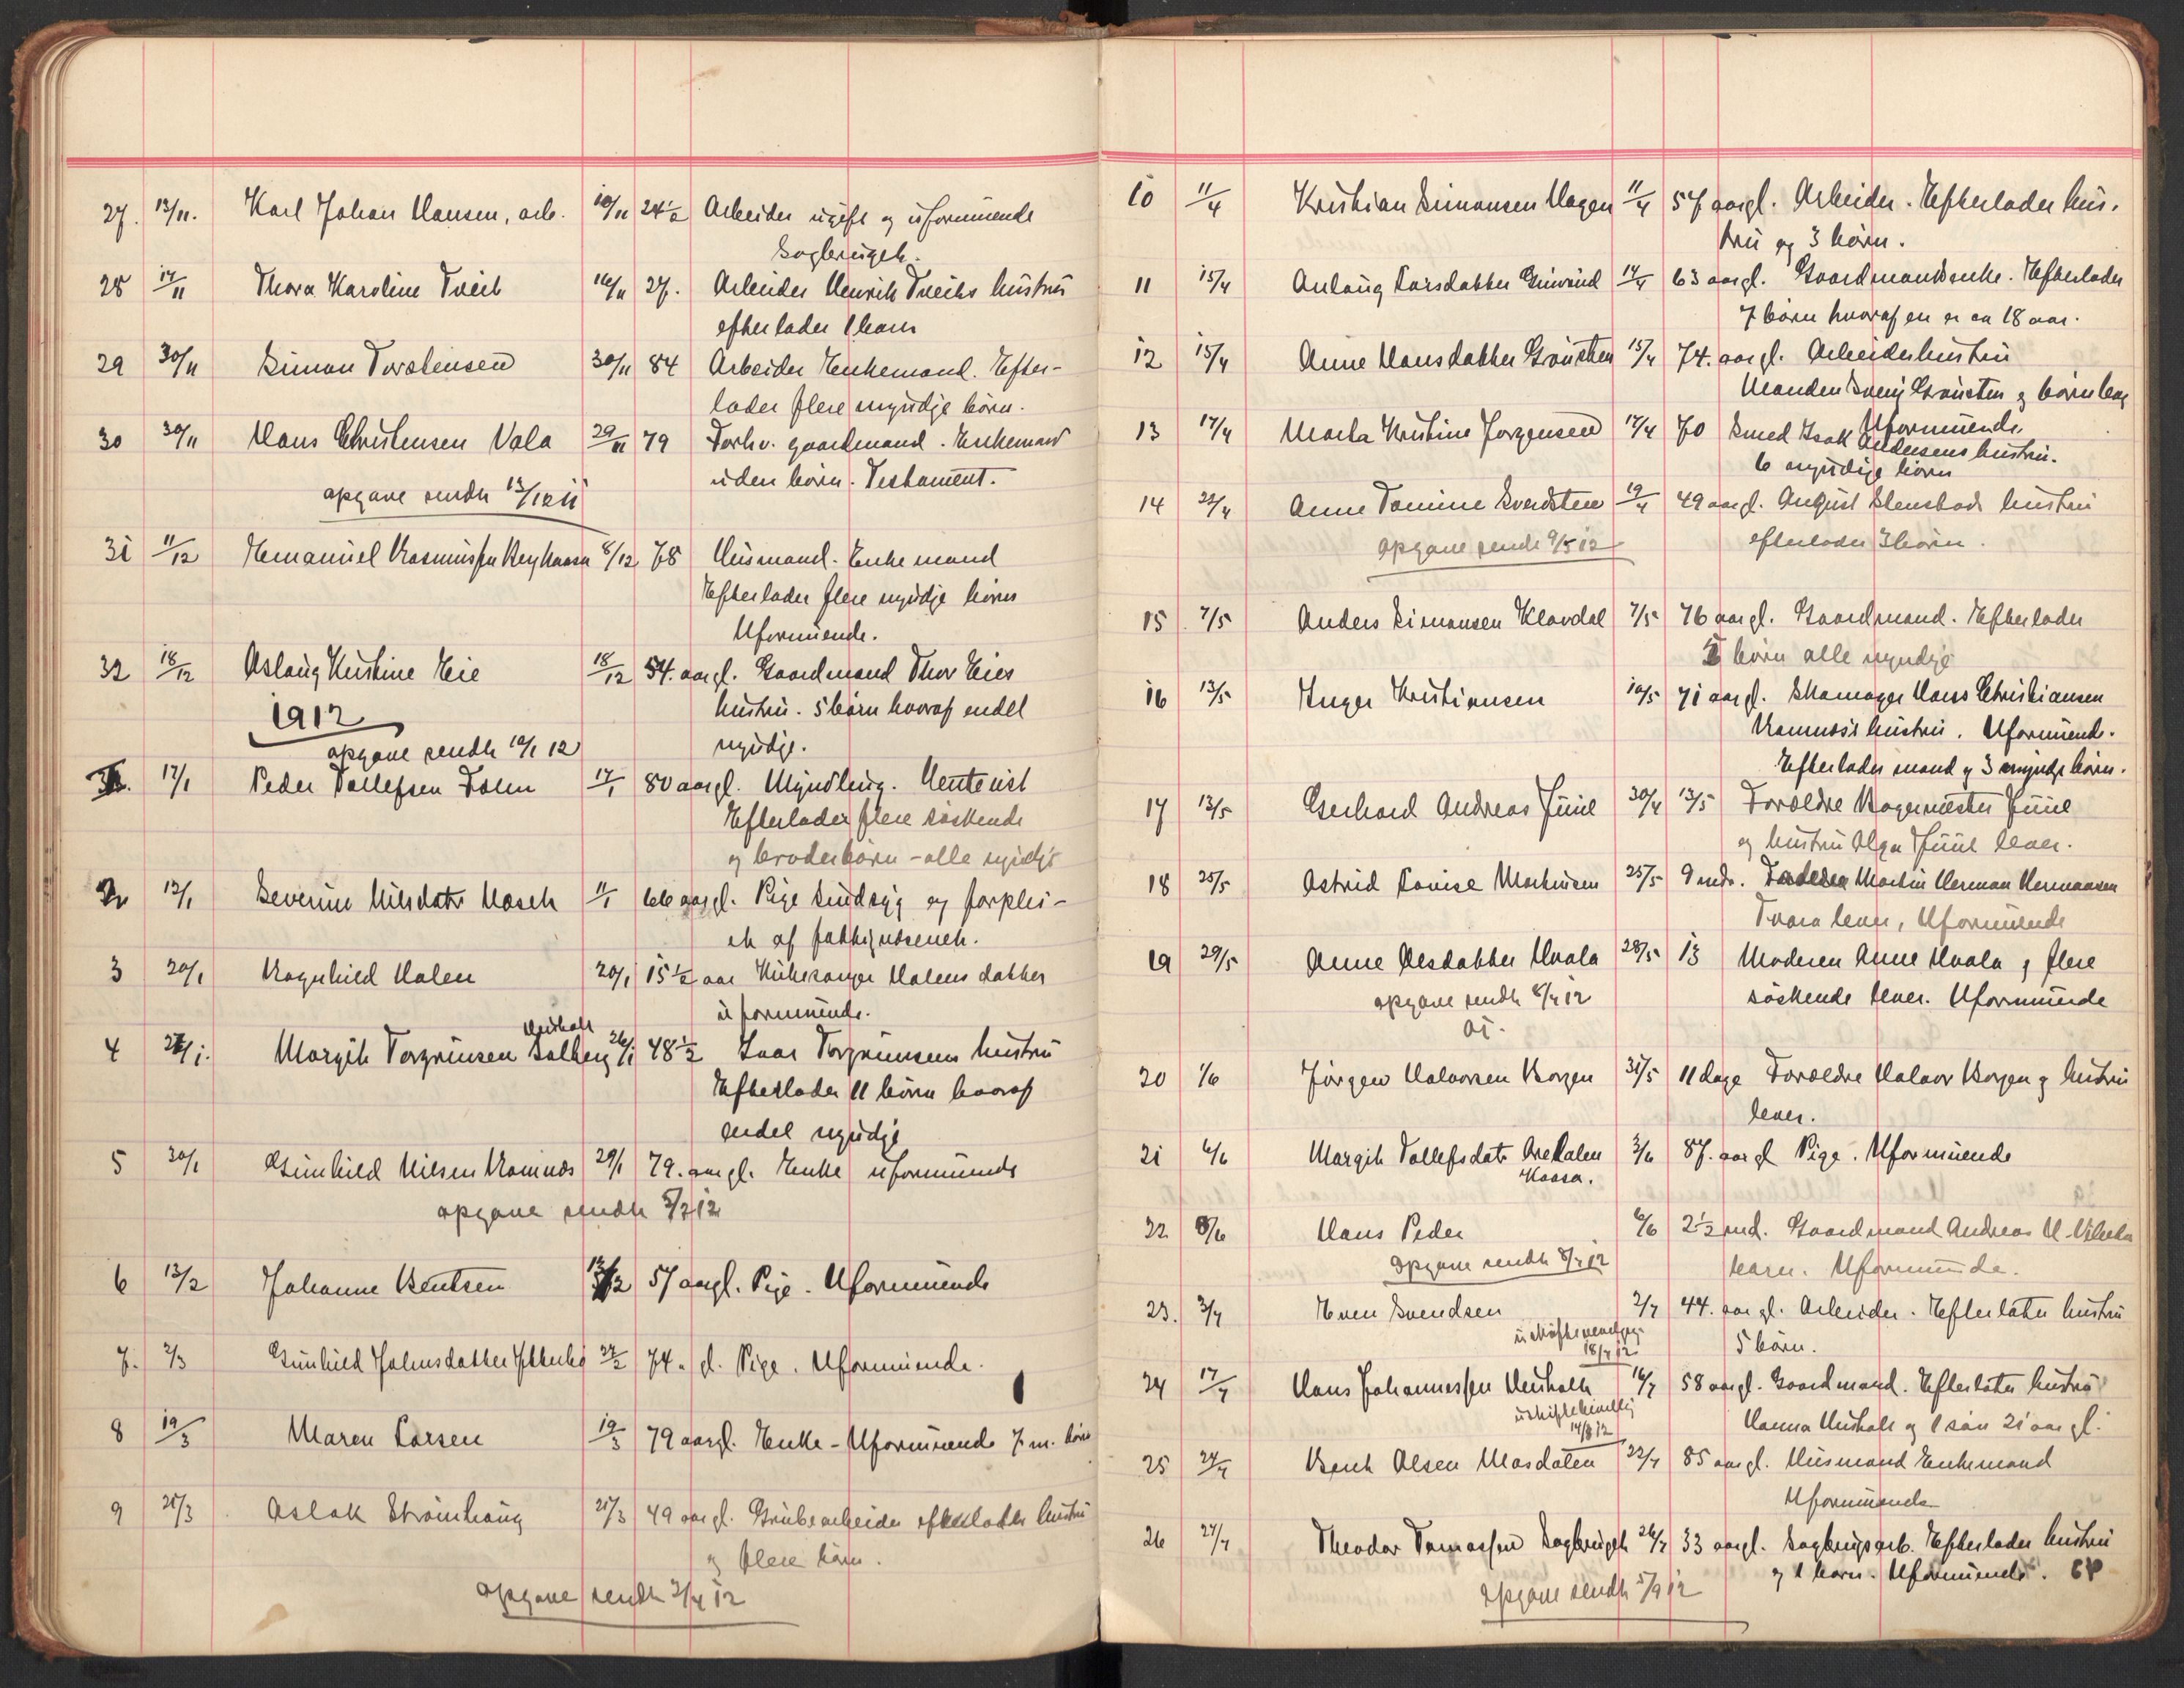 27. 13/11. Karl Johan Hansen, arb. 10/11 24½ Arbeider ugift og uformuende
Sagbruget.
28 17/11 Thora Karoline Tveit 16/11 27. Arbeider Henrik Tveits hustru
efterlader 1 barn
29 30/11 Simon Torstensen 30/11 84 Arbeider Enkemand. Efter-
lader flere myndje börn.
30 30/11 Hans Christensen Vala 29/11 79 Forhv. gaardmand. Enkemand
uden börn. Testament.
opgave sendt 13/12 11
31 11/12 Emanuel Rasmussen 8/12 78 Husmand. Enkemand
Efterlader flere myndje börn
Uformuende.
32 18/12 Aslaug Kirstine Eie 18/12 54. aargl. Gaardmand Thor Eies
hustru. 5 börn hvoraf endel
1912
myndje.
opgave sendt 10/1 12
17/1 Peder Tollefsen 17/1 80 aargl. Myndling. Rentenist
Efterlader flere söskende
og broderbörn - alle myndje
2 12/1 Severine Nilsdatr Moseh 11/1 66 aargl. Pige sindsyg og forplei-
et af fattigvæsenet.
3 20/1 Ragnhild Halen 20/1 15½ aar Kirkesanger Halens datter
uformuende.
Neshalt
4 27/1. Margit Torgrimsen Solberg 26/1 48½ Ivar Torgrimsens hustru
Efterlader 11 börn hvoraf
endel myndje
5 30/1 Gunhild Nilsen Romnes 29/1 79. aargl. Enke uformuende
opgave sendt 5/2 12
6 13/2 Johanne Bentsen 12/2 57 aargl. Pige. Uformuende
7. 2/3 Gunhild Johnsdatter 27/2 74. gl. Pige. Uformuende.
8 19/3 Maren Larsen 19/3 79 aargl. Enke - Uformuende 7 m. börn
9 21/3 Aslak Strömhaug 21/3 49 aargl. Grubearbeider efterlader hustru
og flere börn.
opgave sendt 3/4 12
10 11/4 Kristian Simonsen Hagen 11/4 57 aargl. Arbeider. Efterlader hus-
tru og 3 börn.
11 15/4 Anlaug Larsdatter Grivind 14/4 63 aargl. Gaardmandsenke. Efterlader
7 börn hvoraf en er ca 18 aar.
12 15/4 Anne Hansdatter Grausten 15/4 74. aargl. Arbeiderhustru
Manden Svenj Grausten og börn
Uformuende.
13 17/4 Marta Kristine Jorgensen 17/4 70 Smed Isak Andersens hustru.
6 myndige börn
14 22/4 Anne Tomine Sverdsten 19/4 49 aargl. August Stensbods hustru
efterlader 3 börn.
opgave sendt 9/5 12
15. 7/5 Anders Simonsen Klovdal 7/5 76 aargl. Gaardmand. Efterlader
börn alle myndje
16 13/5 Inger Kristiansen 10/5 71 aargl. Skomager Hans Christiansen
Romnes's hustru. Uformuende.
Efterlader mand og 3 myndje börn.
17 13/5 Gerhard Andreas Juul 30/4 13/5 Forældre Bagermester Juul
og hustru Olga Juul lever.
18 25/5 Astrid Lovise Martinsen 25/5 9 mdr. Martin Herman Hermansen
Tvara lever, Uformuende
19 29/5 Anne Olsdatter Hvala 28/5 13 Moderen Anne Hvala og flere
söskende lever. Uformuende
opgave sendt 8/7 12
20 1/6 Jörgen Halvorsen Borgen 31/5 11 dage Forældre Halvor Borgen og hustru
lever.
21 6/6 Margit Tollefsdatr 3/6 87. aargl Pige. Uformuende
Kaasa.
22 8/6 Hans Peder 6/6 2½ md. Gaardmand Andreas
barn. Uformuende.
opgave sendt 8/7 12
23. 3/7 Even Svendsen 2/7 44. aargl. Arbeider. Efterlater hustru
5 börn.
18/7 12
24 17/7 Hans Johannessen Neshalt 16/7 58 aargl. Gaardmand. Efterlater hustru
Hanna Neshalt og 1 sön 21 aar gl.
14/8 12
25 24/7 Bent Olsen Mosdalen 22/7 85 aargl. Husmand Enkemand
Uformuende
26 27/7 Theodor Tomassen Sagbruget 26/7 33 aargl. Sagbrugsarb. Efterlader hustru
og 1 barn. Uformuende.
opgave sendt 5/9 12